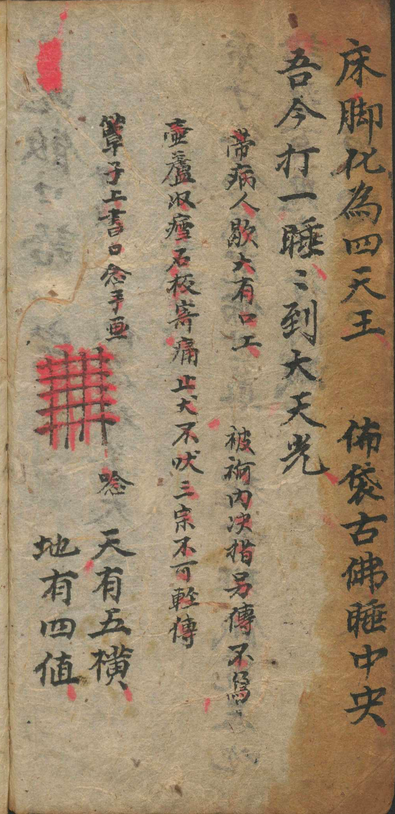 床脚化為四天王　佈袋古佛睡中央
吾今打一睡〻到大天光
帶病人歇大有口工　被裯內決指另傳不寫
壺蘆收瘂石板寄痛止犬不吠三宗不可輕傳
簟子上書口念手画　唸　天有五橫
地有四值